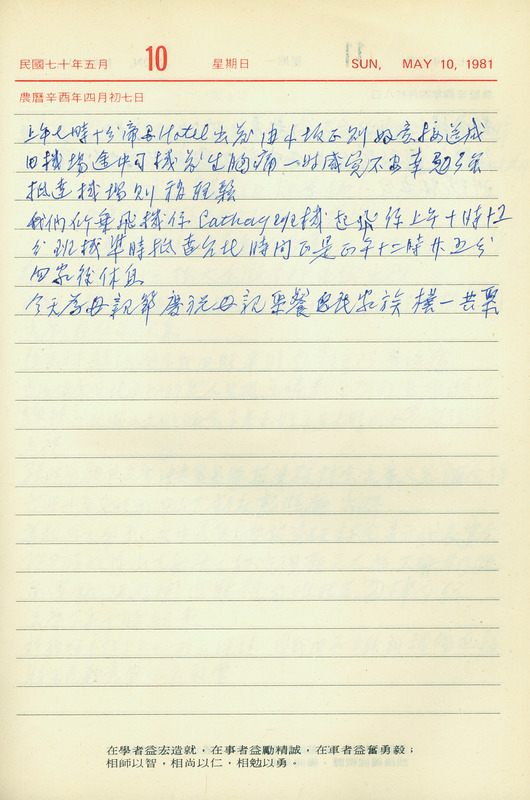 民國七十年五月 10 星期日 SUN, MAY 10, 1981
農曆辛酉年四月初七日
上午七時十分帝國Hotel出發由小坂正則好意接送成
田機場途中司機發生胸痛一時感覺不安幸勉強
抵達機場則稍輕鬆
我們所乘飛機係Cathay班機起飛係上午十時十五
分班機準時抵達台北時間正是正午十二時廿五分
回家後休息
今天為母親節慶祝母親聚餐 家族 一共聚
在學者益宏造就，在事者益勵精誠，在軍者益奮勇毅；
相師以智，相尚以仁，相勉以勇。